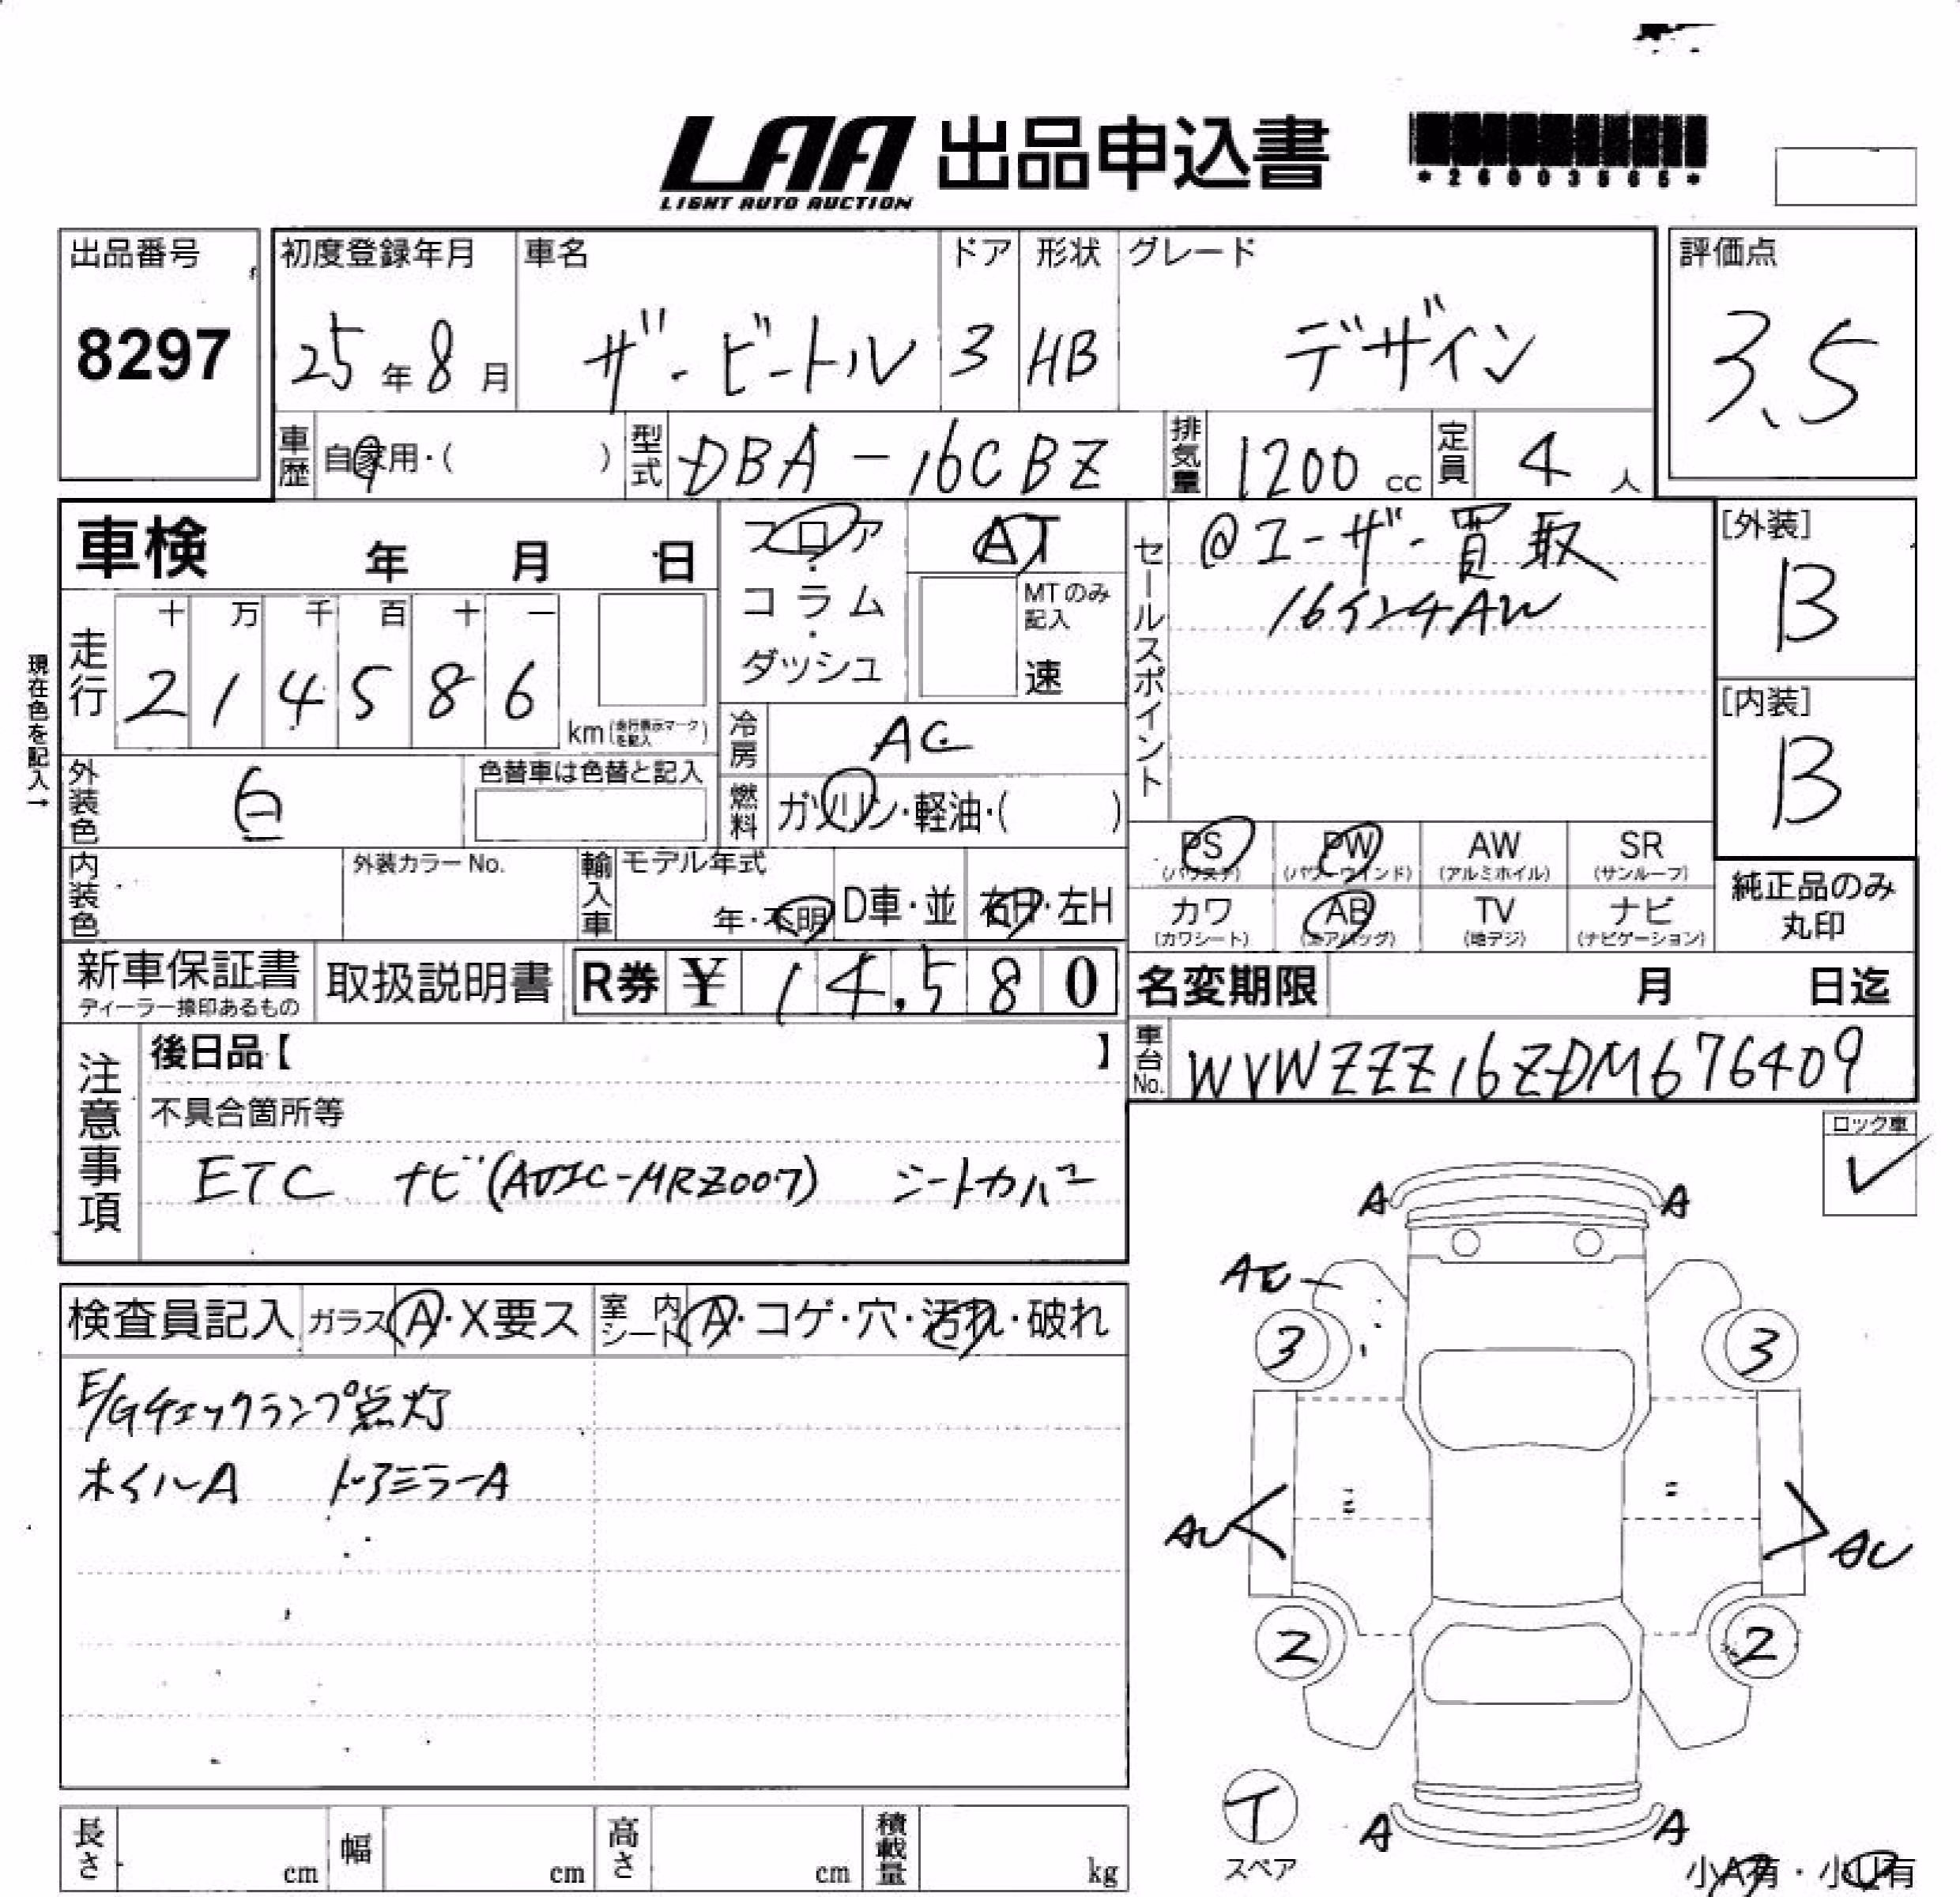 LAA 出品申込書
LIGHT AUTO AUCTION
*26003565*
出品番号
8297
初度登録年月
25年8月
車名
ザ・ビートル
ドア
3
形状
HB
グレード
デザイン
評価点
3.5
車歴 自家用・( )
型式 DBA-16CBZ
排気量 1200cc
定員 4人
車検 年 月 日
フロア・コラム・ダッシュ
AT
MTのみ記入
速
セールスポイント
@ユーザー買取
16インチAW
[外装]
B
[内装]
B
現在色を記入→
走行
十 万 千 百 十 一
2 1 4 5 8 6
km(走行表示マークを記入)
冷房 AC
燃料 ガソリン・軽油・( )
外装色 白
色替車は色替と記入
内装色
外装カラーNo.
輸入車
モデル年式
年・不明
D車・並
右H・左H
PS (パワステ)
PW (パワーウインド)
AW (アルミホイル)
SR (サンルーフ)
カワ (カワシート)
AB (エアバッグ)
TV (地デジ)
ナビ (ナビゲーション)
純正品のみ丸印
新車保証書
ディーラー捺印あるもの
取扱説明書
R券 ¥ 14,580
名変期限 月 日迄
車台No. WVWZZZ16ZDM676409
注意事項
後日品【 】
不具合箇所等
ETC ナビ(AVIC-MRZ007) シートカバー
ロック車 ✓
検査員記入
ガラス A・X要ス
室内シート A・コゲ・穴・汚れ・破れ
E/Gチェックランプ点灯
ホイルA ドアミラーA
A A
3 3
AU AU
2 2
A A
T
スペア
小A有・小U有
長さ cm
幅 cm
高さ cm
積載量 kg